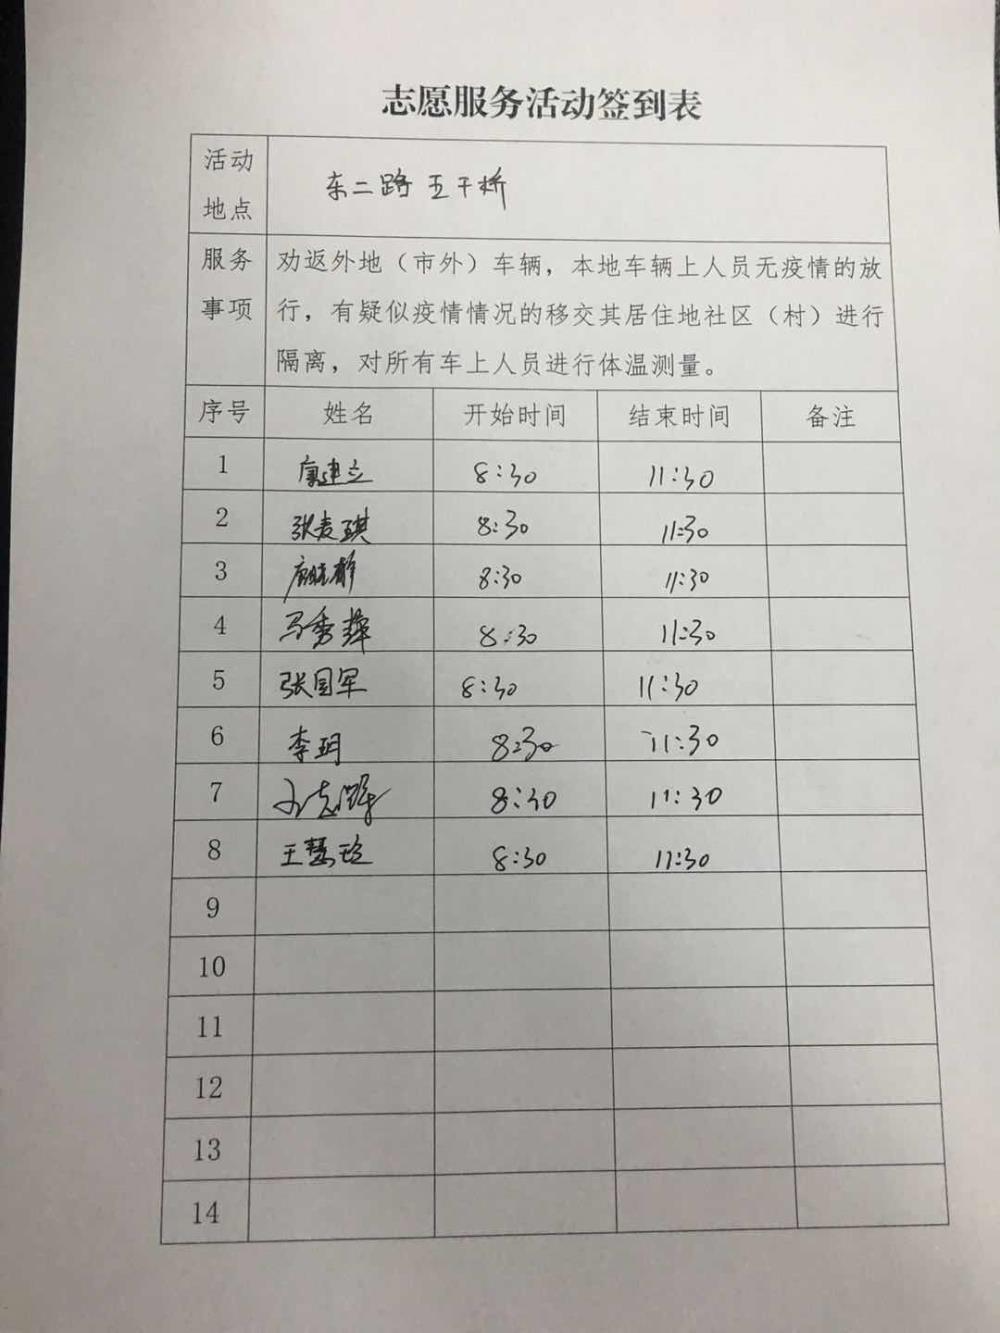 志愿服务活动签到表
活动
地点
东二路 五干桥
服务
事项
劝返外地（市外）车辆，本地车辆上人员无疫情的放
行，有疑似疫情情况的移交其居住地社区（村）进行
隔离，对所有车上人员进行体温测量。
序号 姓名 开始时间 结束时间 备注
1 康建立 8:30 11:30
2 张麦琪 8:30 11:30
3 8:30 11:30
4 马秀萍 8:30 11:30
5 张国军 8:30 11:30
6 李玥 8:30 11:30
7 8:30 11:30
8 王慧玲 8:30 11:30
9
10
11
12
13
14